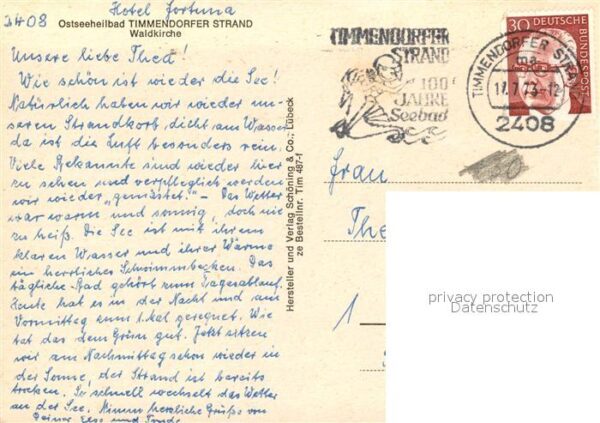 Hotel Fortuna
2408
Ostseeheilbad TIMMENDORFER STRAND
Waldkirche
Unsere liebe Thea!
Wie schön ist wieder die See!
Natürlich haben wir wieder un-
seren Strandkorb dicht am Wasser
da ist die Luft besonders rein.
Viele Bekannte sind wieder hier
zu sehen und verpflegt werden
wir wieder "gemästet". - Das Wetter
war warm und sonnig, doch nie
zu heiß. Die See ist mit ihrem
klaren Wasser und ihrer Wärme
ein herrliches Schwimmbecken. Das
tägliche Bad gehört zum Tagesablauf.
Heute hat es in der Nacht und am
Vormittag zum 1. Mal geregnet. Wie
tat das dem Grün gut. Jetzt sitzen
wir am Nachmittag schon wieder in
der Sonne, der Strand ist bereits
trocken. So schnell wechselt das Wetter
an der See. Nimm herzliche Grüße von
Deiner Else und
Hersteller und Verlag Schöning & Co., Lübeck
ze Bestellnr. Tim 487-f
TIMMENDORFER
STRAND
100
JAHRE
Seebad
TIMMENDORFER STRAND
ma
17.7.73-12
2408
30 DEUTSCHE
BUNDESPOST
Frau
The
1
privacy protection
Datenschutz